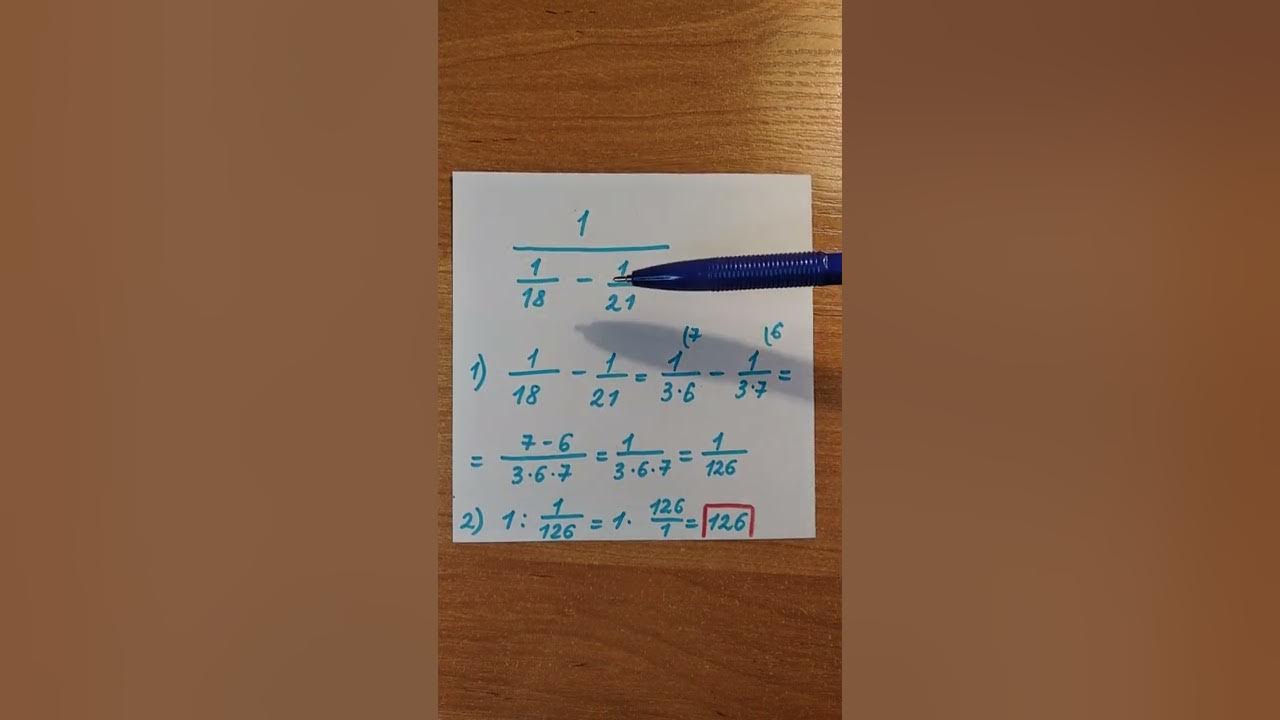 1
1/18 - 1/21
(7 (6
1) 1/18 - 1/21 = 1/3·6 - 1/3·7 =
= 7-6/3·6·7 = 1/3·6·7 = 1/126
2) 1 : 1/126 = 1 · 126/1 = 126